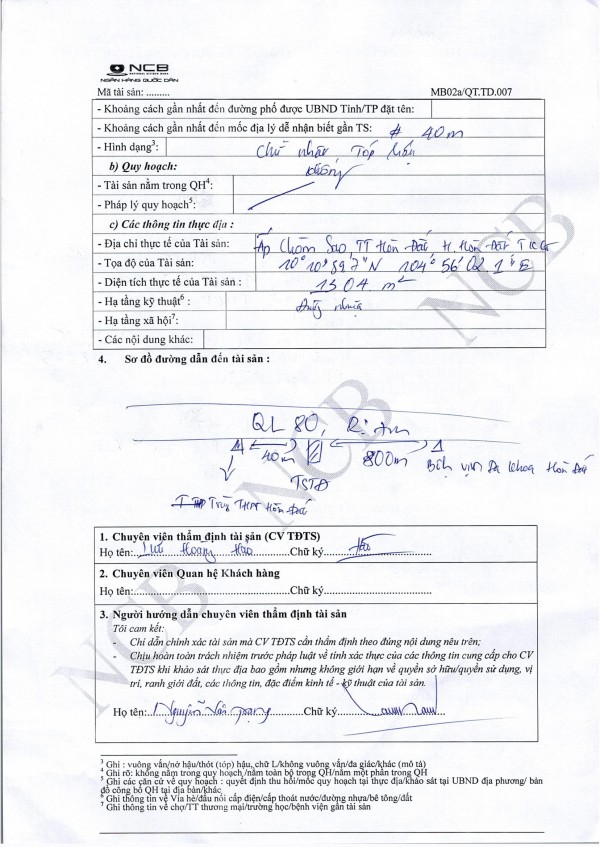 NCB
NGÂN HÀNG QUỐC DÂN
Mã tài sản: ......... MB02a/QT.TD.007
- Khoảng cách gần nhất đến đường phố được UBND Tỉnh/TP đặt tên:
- Khoảng cách gần nhất đến mốc địa lý dễ nhận biết gần TS: 40m
- Hình dạng³: Chữ nhật, Tóp hậu
b) Quy hoạch: không
- Tài sản nằm trong QH⁴:
- Pháp lý quy hoạch⁵:
c) Các thông tin thực địa :
- Địa chỉ thực tế của Tài sản: Ấp Chòm Sao, TT Hòn Đất H. Hòn Đất T KG
- Tọa độ của Tài sản: 104° 56'
- Diện tích thực tế của Tài sản : 1304 m²
- Hạ tầng kỹ thuật⁶ : Đường nhựa
- Hạ tầng xã hội⁷:
- Các nội dung khác:
4. Sơ đồ đường dẫn đến tài sản :
QL 80,
40m 800m Bệnh viện Đa khoa Hòn Đất
TSTĐ
Trường THPT Hòn Đất
1. Chuyên viên thẩm định tài sản (CV TĐTS)
Họ tên: Lưu Hoàng Hảo Chữ ký
2. Chuyên viên Quan hệ Khách hàng
Họ tên: Chữ ký
3. Người hướng dẫn chuyên viên thẩm định tài sản
Tôi cam kết:
- Chỉ dẫn chính xác tài sản mà CV TĐTS cần thẩm định theo đúng nội dung nêu trên;
- Chịu hoàn toàn trách nhiệm trước pháp luật về tính xác thực của các thông tin cung cấp cho CV
TĐTS khi khảo sát thực địa bao gồm nhưng không giới hạn về quyền sở hữu/quyền sử dụng, vị
trí, ranh giới đất, các thông tin, đặc điểm kinh tế - kỹ thuật của tài sản.
Họ tên: Nguyễn Văn Chữ ký
³ Ghi : vuông vắn/nở hậu/thót (tóp) hậu, chữ L/không vuông vắn/đa giác/khác (mô tả)
⁴ Ghi rõ: không nằm trong quy hoạch /nằm toàn bộ trong QH/nằm một phần trong QH
⁵ Ghi các căn cứ về quy hoạch : quyết định thu hồi/mốc quy hoạch tại thực địa/khảo sát tại UBND địa phương/ bản
đồ công bố QH tại địa bàn/khác
⁶ Ghi thông tin về Vỉa hè/đấu nối cấp điện/cấp thoát nước/đường nhựa/bê tông/đất
⁷ Ghi thông tin về chợ/TT thương mại/trường học/bệnh viện gần tài sản